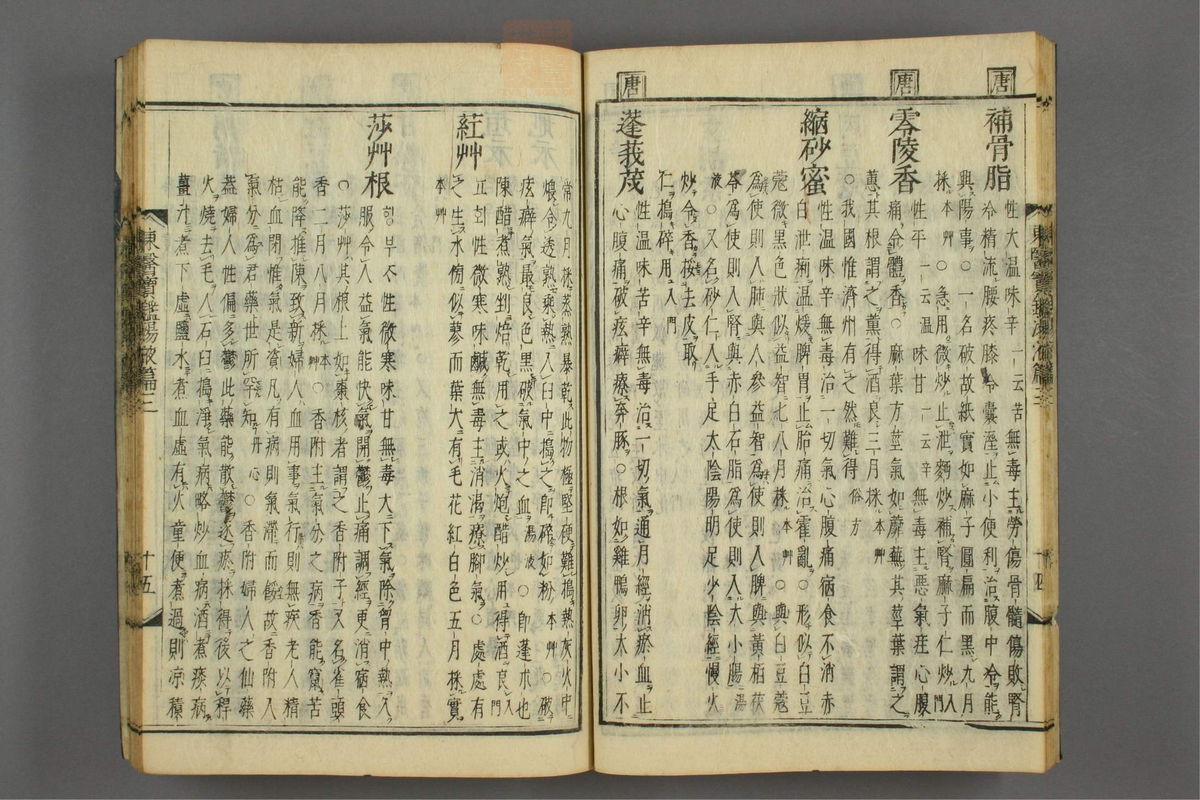 唐
補骨脂
性大溫味辛一云苦無毒主勞傷骨髓傷敗腎
冷精流腰疼膝冷囊溼止小便利治腹中冷能
興陽事○一名破故紙實如麻子圓扁而黑九月
採本艸○急用微炒止泄麪炒補腎麻子仁炒入門
唐
零陵香
性平一云溫味甘一云辛無毒主惡氣疰心腹
痛令體香○麻葉方莖氣如蘼蕪其莖葉謂之
蕙其根謂之薰得酒良三月採本艸
○我國惟濟州有之然難得俗方
縮砂蜜
性溫味辛無毒治一切氣心腹痛宿食不消赤
白泄痢溫煖脾胃止胎痛治霍亂○形似白豆
蔻微黑色狀似益智七八月採本艸○與白豆蔻
爲使則入肺與人參益智爲使則入脾與黃栢茯
苓爲使則入腎與赤白石脂爲使則入大小腸湯
液○又名砂仁入手足太陰陽明足少陰經慢火
炒令香挼去皮取
仁搗碎用入門
唐
蓬莪茂
性溫味苦辛無毒治一切氣通月經消瘀血止
心腹痛破痃癖療奔豚○根如雞鴨卵大小不
東醫寶鑑湯液篇三
十四
常九月採蒸熟暴乾此物極堅硬難搗熱灰火中
煨令透熟乘熱入臼中搗之卽碎如粉本艸○破
痃癖氣最良色黑破氣中之血湯液○卽蓬朮也
陳醋煮熟剉焙乾用之或火炮醋炒用得酒良入門
葒艸
요화性微寒味鹹無毒主消渴療脚氣○處處有
之生水傍似蓼而葉大有毛花紅白色五月採實
本艸
莎艸根
향부ᄌᆞ性微寒味甘無毒大下氣除胷中熱久
服令人益氣能快氣開鬱止痛調經更消宿食
○莎艸其根上如棗核者謂之香附子又名雀頭
香二月八月採本艸○香附主氣分之病香能竄苦
能降推陳致新婦人血用事氣行則無疾老人精
枯血閉惟氣是資凡有病則氣滯而餒故香附入
氣分爲君藥世所罕知丹心○香附婦人之仙藥
蓋婦人性偏多鬱此藥能散鬱逐瘀採得後以稈
火燒去毛入石臼搗淨氣病略炒血病酒煮痰病
薑汁煮下虛鹽水煮血虛有火童便煮過則凉積
東醫寶鑑湯液篇三
十五